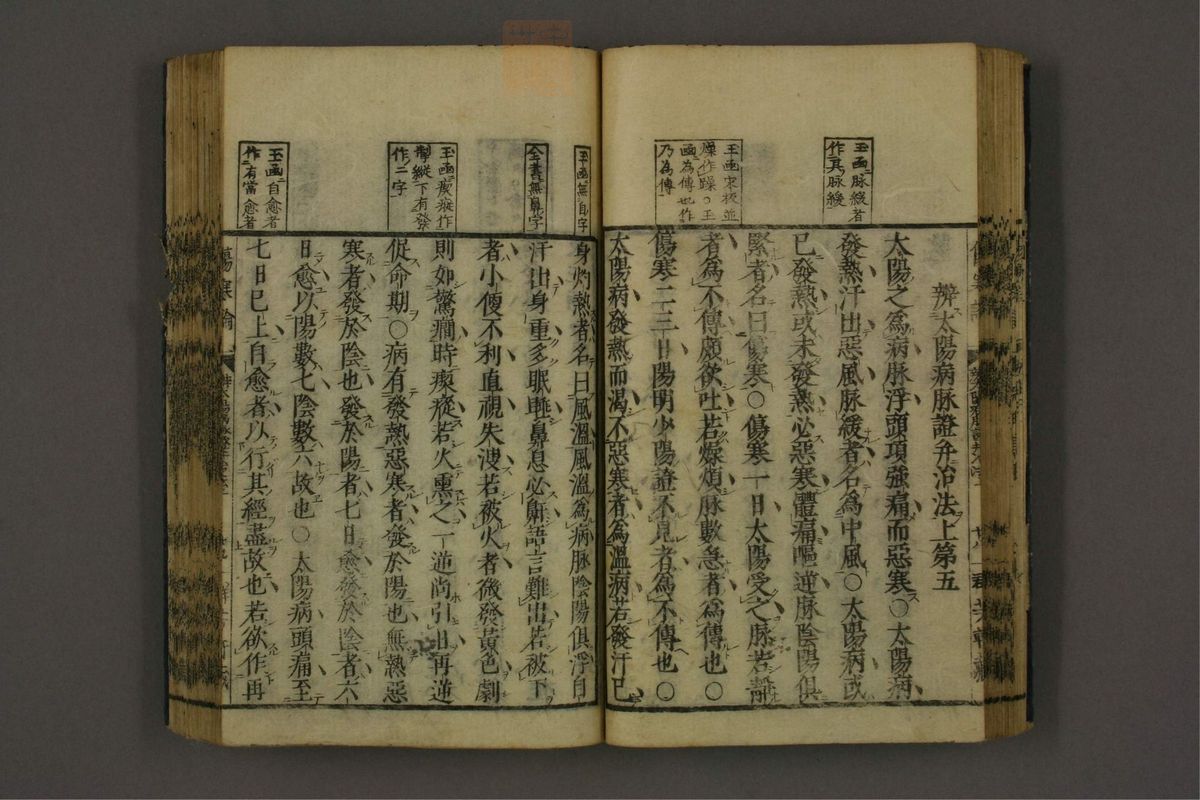 玉函脉緩者
作其脉緩
玉函宋板並
燥作躁○玉
函為傳也作
乃為傳
辨太陽病脉證并治法上第五
太陽之為病脉浮頭項強痛而惡寒○太陽病
發熱汗出惡風脉緩者名為中風○太陽病或
已發熱或未發熱必惡寒體痛嘔逆脉陰陽俱
緊者名曰傷寒○傷寒一日太陽受之脉若靜
者為不傳頗欲吐若燥煩脉數急者為傳也○
傷寒二三日陽明少陽證不見者為不傳也○
太陽病發熱而渴不惡寒者為溫病若發汗已
玉函無自字
全書無鼻字
玉函瘈瘲作
掣縱下有發
作二字
玉函自愈者
作有當愈者
身灼熱者名曰風溫風溫為病脉陰陽俱浮自
汗出身重多眠睡鼻息必鼾語言難出若被下
者小便不利直視失溲若被火者微發黃色劇
則如驚癇時瘈瘲若火熏之一逆尚引日再逆
促命期○病有發熱惡寒者發於陽也無熱惡
寒者發於陰也發於陽者七日愈發於陰者六
日愈以陽數七陰數六故也○太陽病頭痛至
七日已上自愈者以行其經盡故也若欲作再
傷寒論